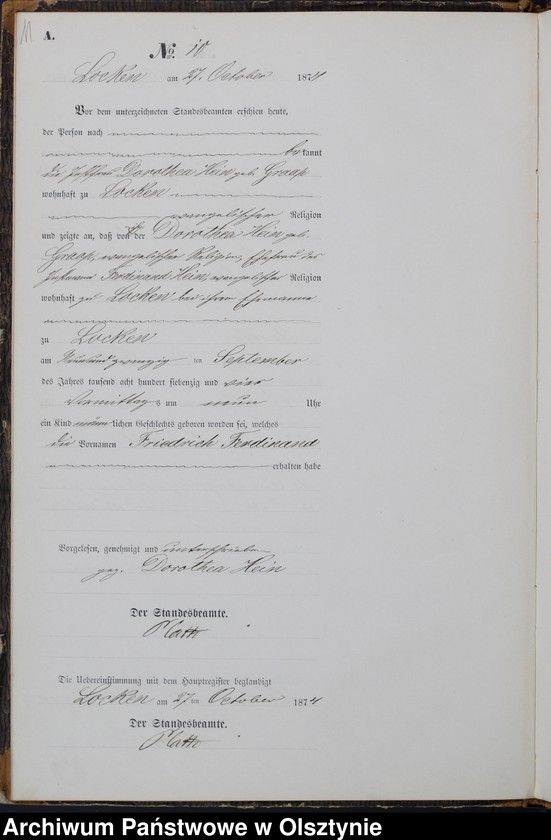 11
A.
No. 10
Locken am 27. October 1874
Vor dem unterzeichneten Standesbeamten erschien heute,
der Person nach
bekannt
die Dorothea Hein geb. Graap
wohnhaft zu Locken
evangelischer Religion
und zeigte an, daß von der Dorothea Hein geb.
Graap, evangelischer Religion, Ehefrau des
Ferdinand Hein, evangelischer Religion
wohnhaft zu Locken bei ihrem Ehemanne
zu Locken
am neunundzwanzig ten September
des Jahres tausend acht hundert siebenzig und vier
Vormittags um neun Uhr
ein Kind männlichen Geschlechts geboren worden sei, welches
die Vornamen Friedrich Ferdinand
erhalten habe
Vorgelesen, genehmigt und unterschrieben
gez. Dorothea Hein
Der Standesbeamte.
Die Uebereinstimmung mit dem Hauptregister beglaubigt
Locken am 27 ten October 1874
Der Standesbeamte.
Archiwum Państwowe w Olsztynie